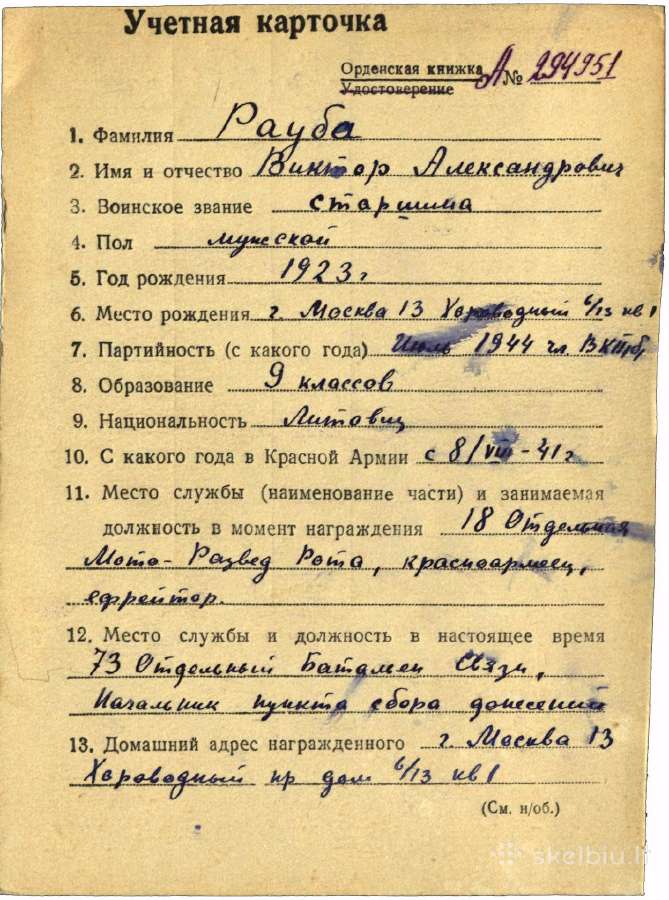 Учетная карточка
Орденская книжка А № 294951
Удостоверение
1. Фамилия Рауба
2. Имя и отчество Виктор Александрович
3. Воинское звание старшина
4. Пол мужской
5. Год рождения 1923 г
6. Место рождения г. Москва 13 Хороводный 6/13 кв 1
7. Партийность (с какого года) Июль 1944 чл. ВКПб
8. Образование 9 классов
9. Национальность Литовец
10. С какого года в Красной Армии с 8/VIII-41 г
11. Место службы (наименование части) и занимаемая
должность в момент награждения 18 Отдельная
Мото-Развед Рота, красноармеец,
ефрейтор.
12. Место службы и должность в настоящее время
73 Отдельный Батальон Связи,
Начальник пункта сбора донесений
13. Домашний адрес награжденного г. Москва 13
Хороводный пр дом 6/13 кв 1
(См. н/об.)
skelbiu.lt